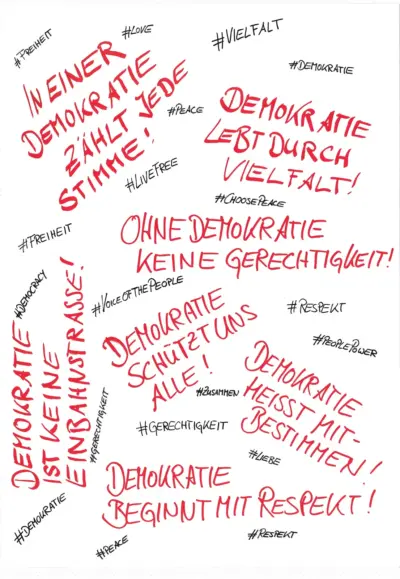 #FREIHEIT
#LOVE
#VIELFALT
IN EINER
DEMOKRATIE
ZÄHLT JEDE
STIMME!
#DEMOKRATIE
#PEACE
DEMOKRATIE
LEBT DURCH
VIELFALT!
#LIVEFREE
#CHOOSEPEACE
#FREIHEIT
OHNE DEMOKRATIE
KEINE GERECHTIGKEIT!
#DEMOCRACY
#VOICEOFTHEPEOPLE
#RESPEKT
DEMOKRATIE
IST KEINE
EINBAHNSTRASSE!
DEMOKRATIE
SCHÜTZT UNS
ALLE!
#PEOPLEPOWER
#ZUSAMMEN
DEMOKRATIE
HEISST MIT-
BESTIMMEN!
#GERECHTIGKEIT
#GERECHTIGKEIT
#LIEBE
DEMOKRATIE
BEGINNT MIT RESPEKT!
#DEMOKRATIE
#PEACE
#RESPEKT